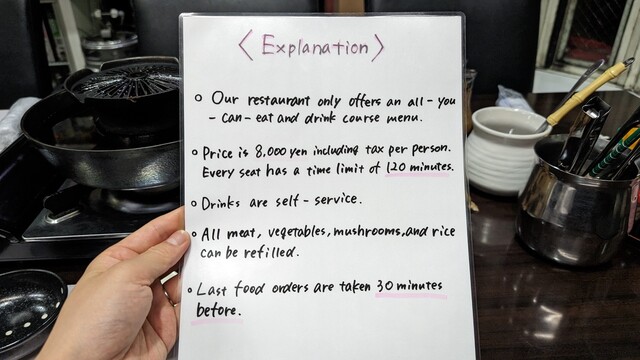 〈Explanation〉
○ Our restaurant only offers an all-you
-can-eat and drink course menu.
○ Price is 8,000 yen including tax per person.
Every seat has a time limit of 120 minutes.
○ Drinks are self-service.
○ All meat, vegetables, mushrooms, and rice
can be refilled.
○ Last food orders are taken 30 minutes
before.